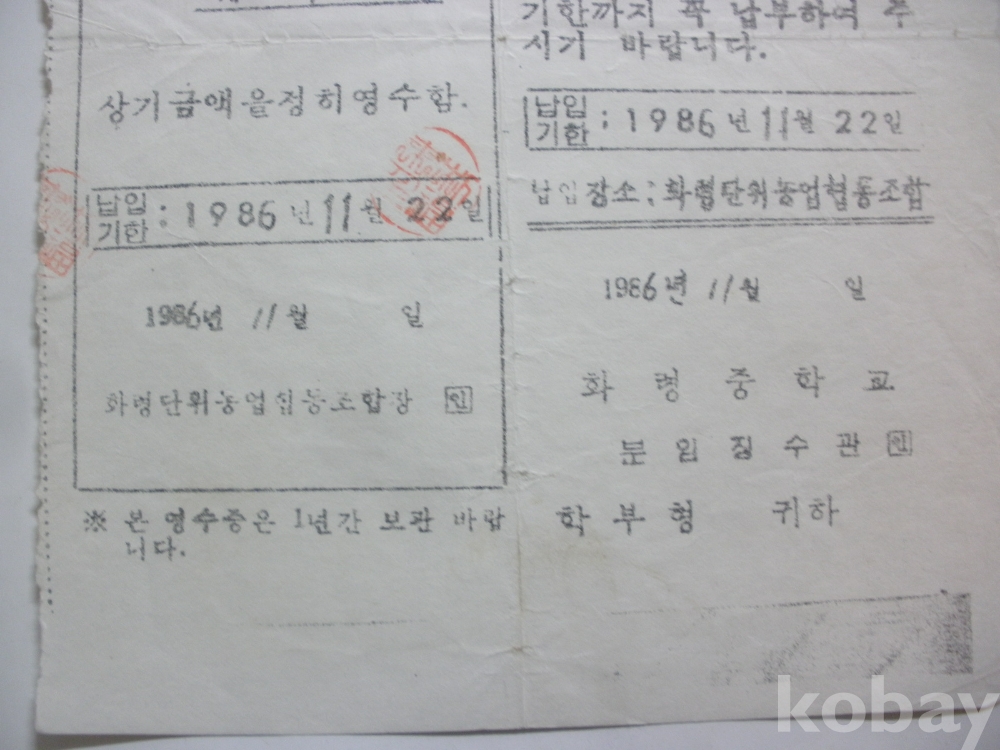 상기 금액을 정히 영수함.
납입
기한 : 1986년 11월 22일
1986년 11월 일
화명단위농업협동조합장 인
※ 본 영수증은 1년간 보관 바랍
니다.
기한까지 꼭 납부하여 주
시기 바랍니다.
납입
기한 : 1986년 11월 22일
납입장소 : 화명단위농업협동조합
1986년 11월 일
화명중학교
분임징수관 인
학부형 귀하
kobay